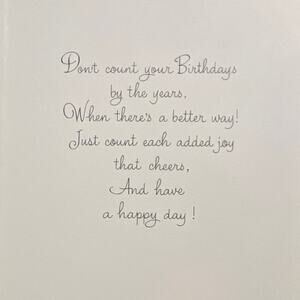 Don't count your Birthdays
by the years,
When there's a better way!
Just count each added joy
that cheers,
And have
a happy day!